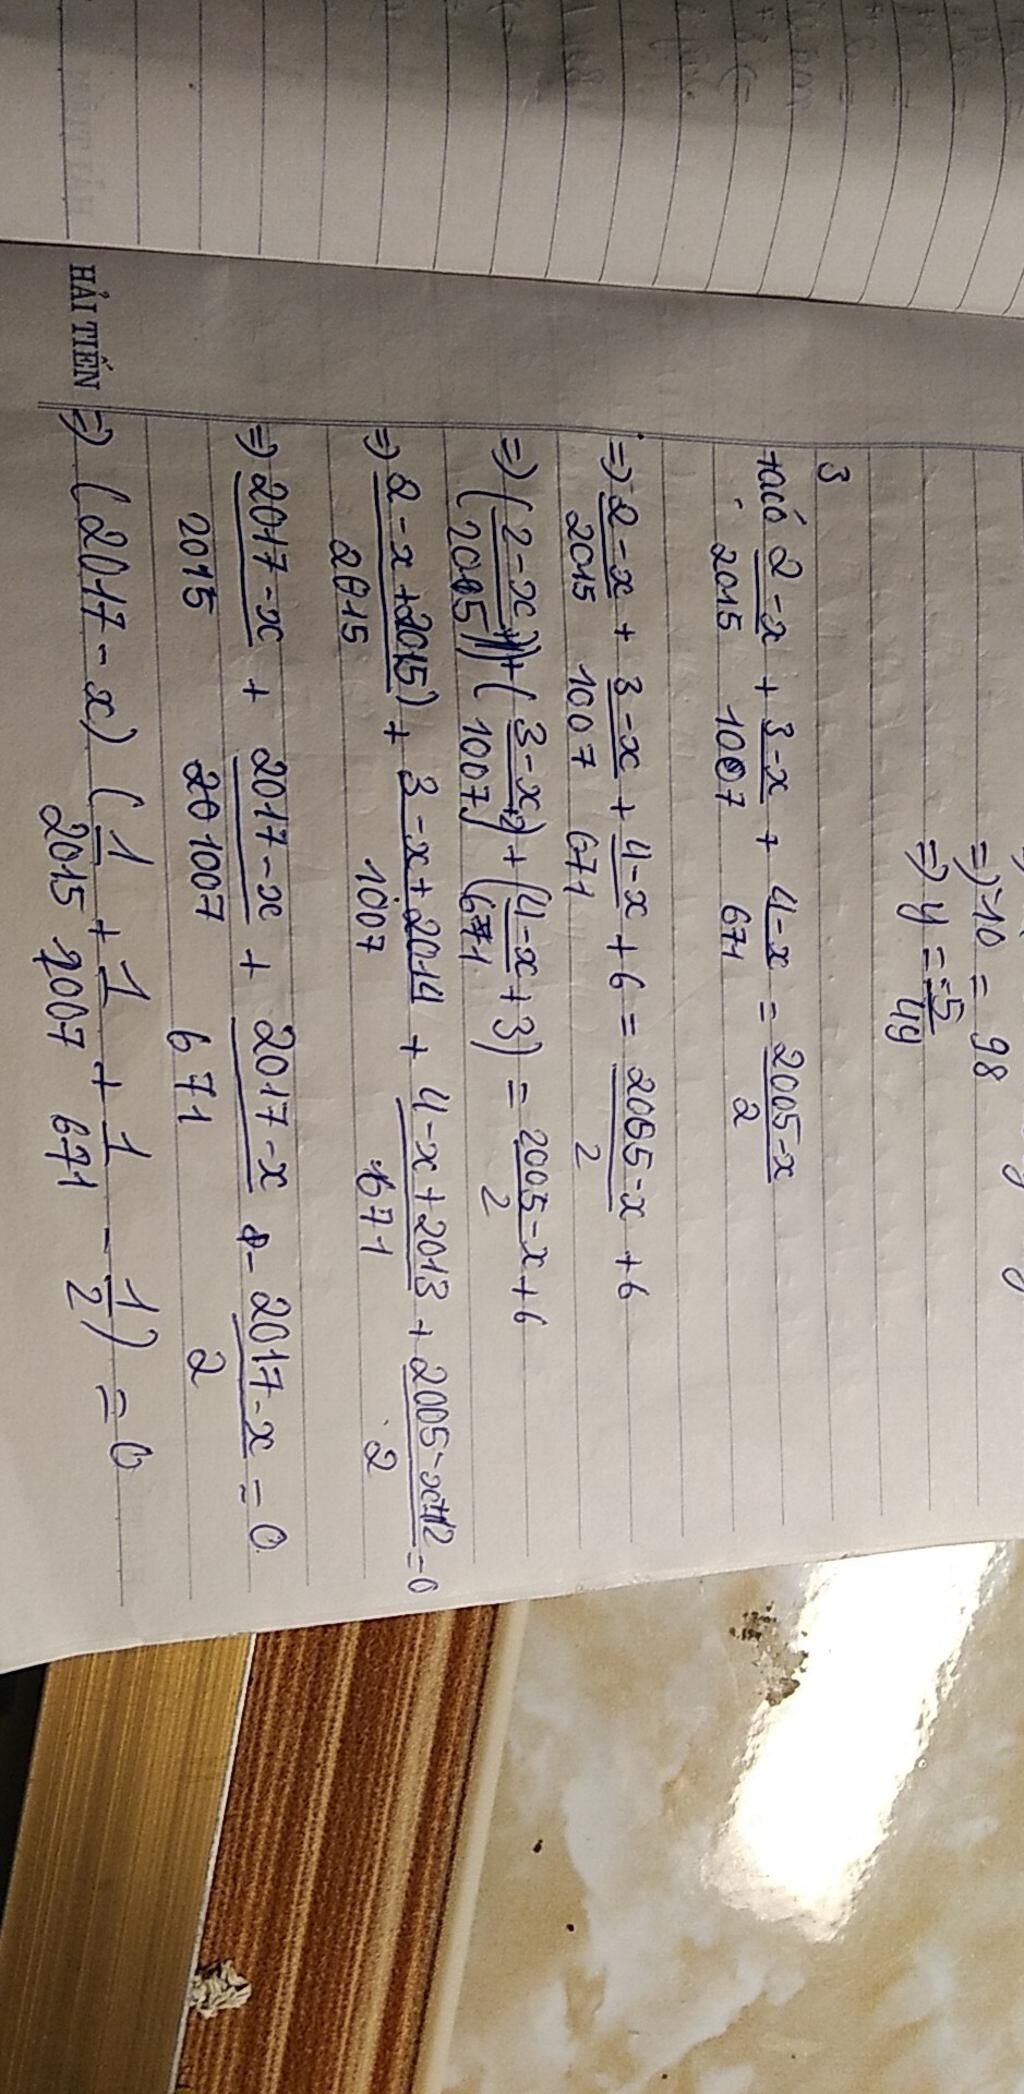 => -10 = 98
=> y = -5/49
3
ta có 2-x/2015 + 3-x/1007 + 4-x/671 = 2005-x/2
=> 2-x/2015 + 3-x/1007 + 4-x/671 + 6 = 2005-x/2 + 6
=> (2-x/2015 + 1) + (3-x/1007 + 2) + (4-x/671 + 3) = 2005-x/2 + 6
=> 2-x+2015)/2015 + 3-x+2014/1007 + 4-x+2013/671 + 2005-x+12/2 = 0
=> 2017-x/2015 + 2017-x/1007 + 2017-x/671 - 2017-x/2 = 0
=> (2017-x) (1/2015 + 1/1007 + 1/671 - 1/2) = 0
HẢI TIẾN